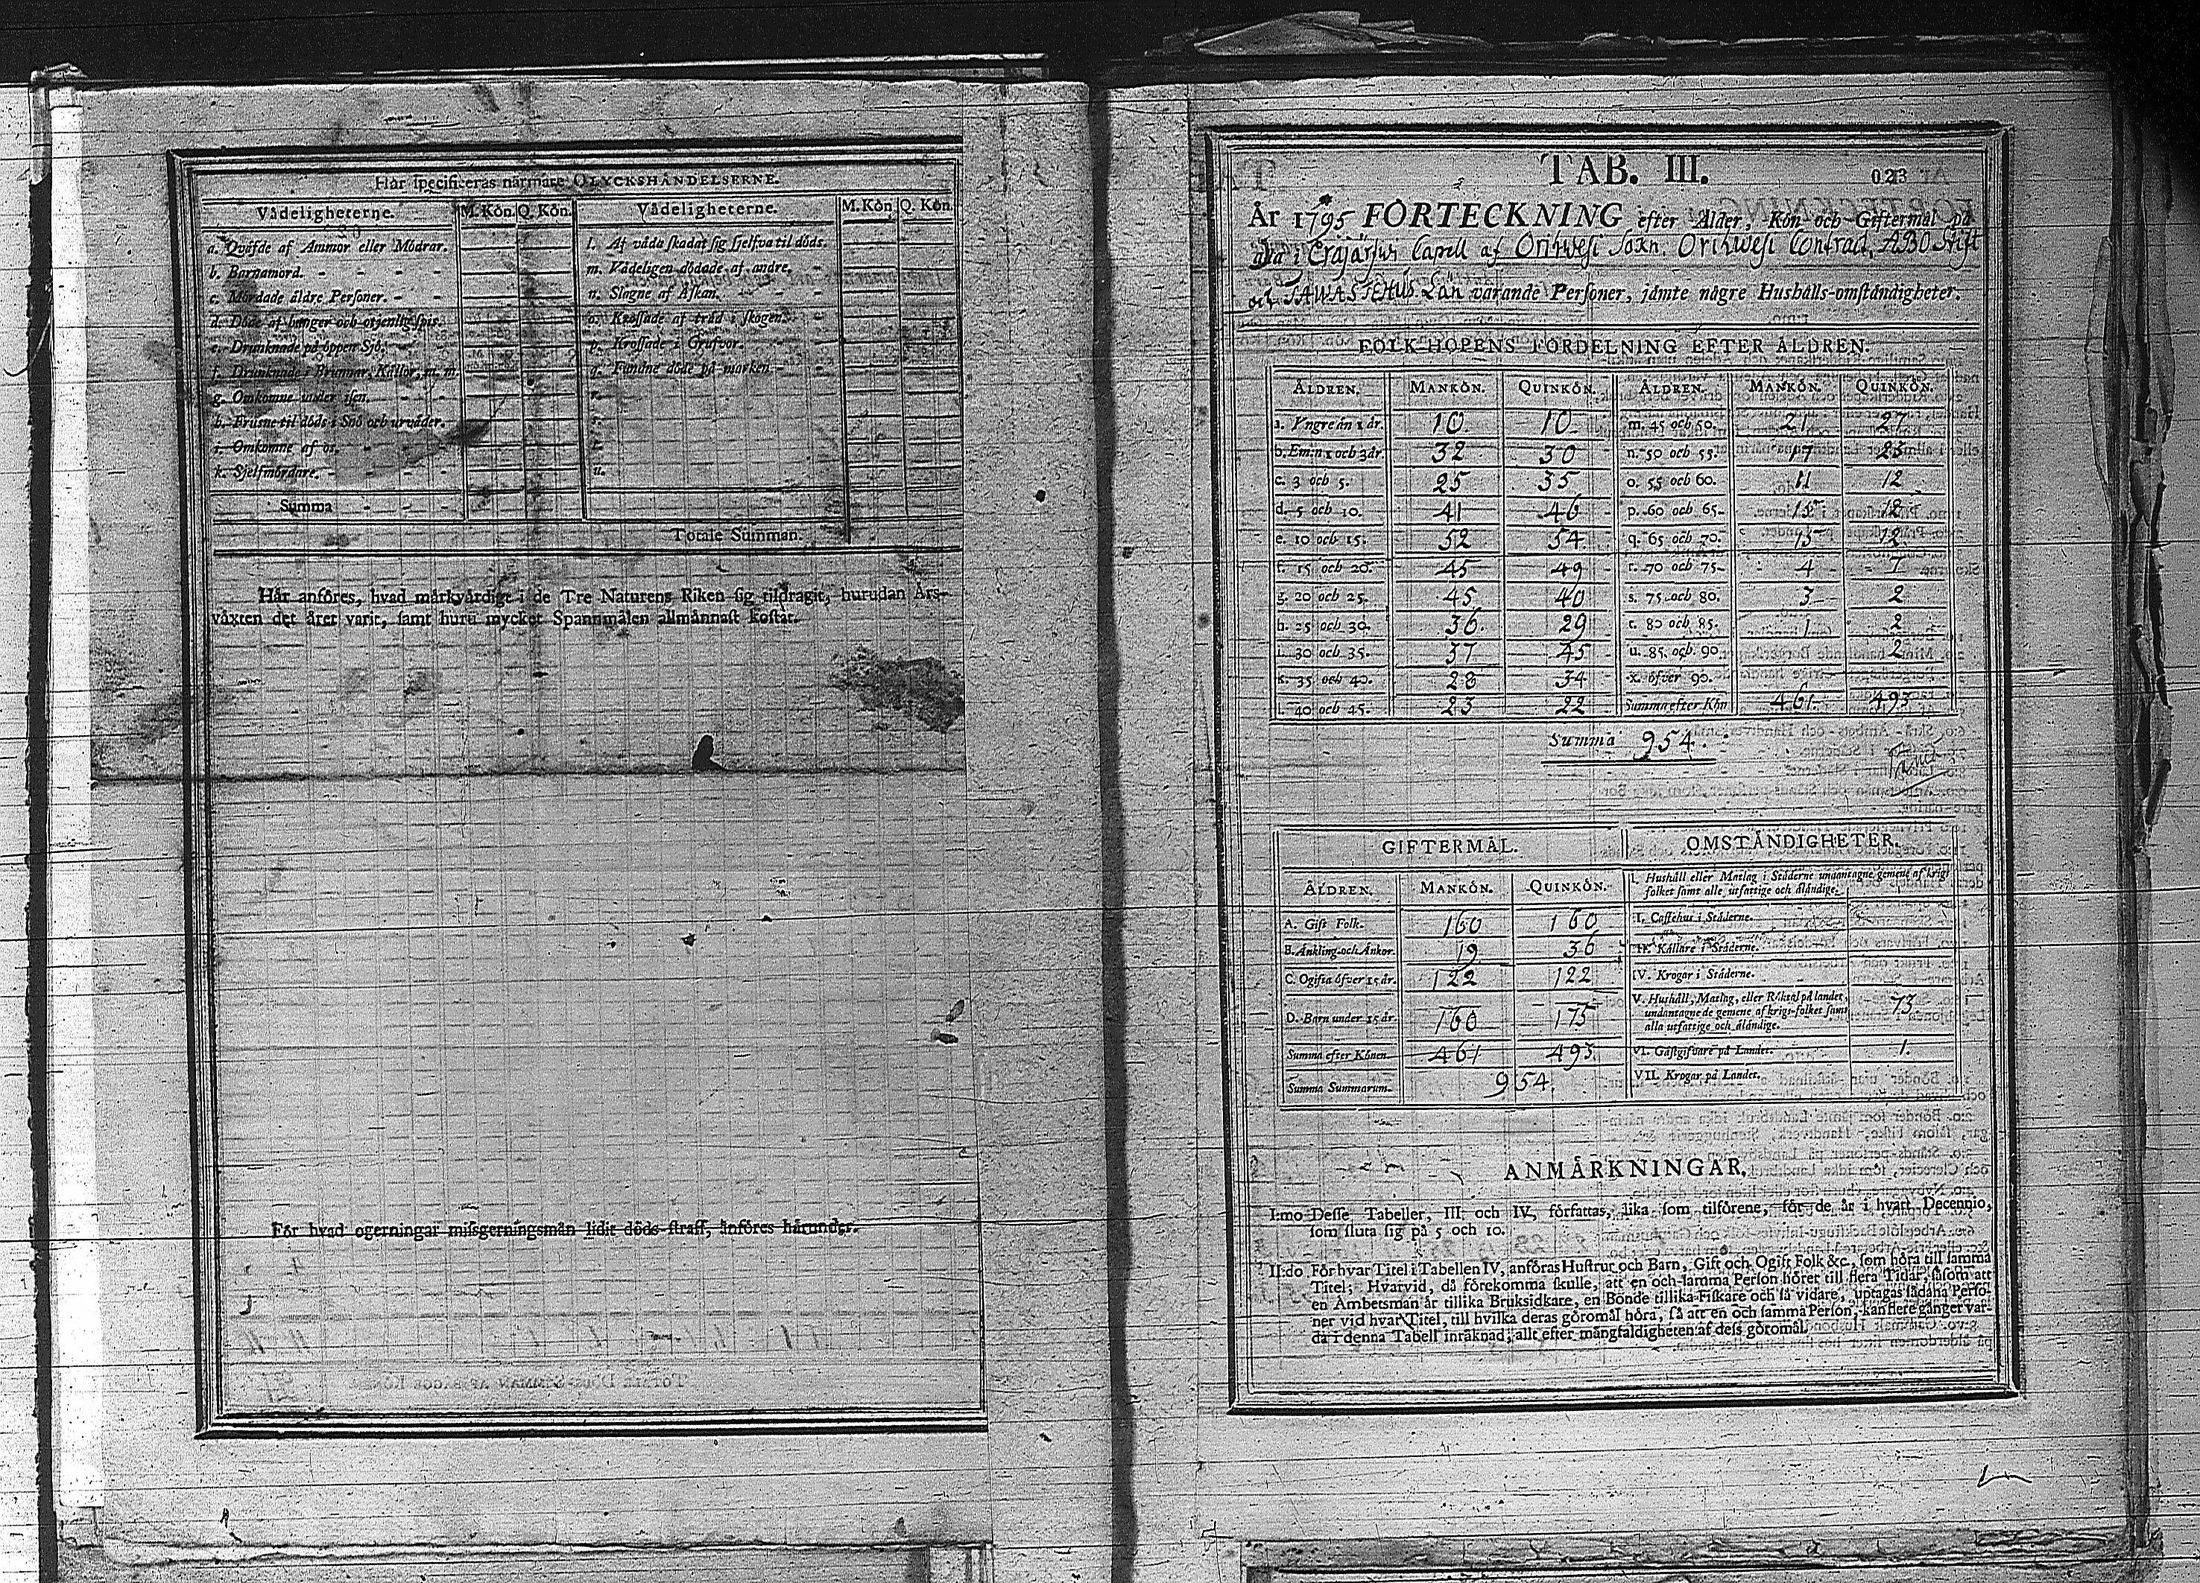 Här specificeras närmare OLYCKSHÄNDELSERNE.
Vådeligheterne. M. Kön. Q. Kön. Vådeligheterne. M. Kön Q. Kön.
a. Qväfde af Ammor eller Mödrar. l. Af våda skadat sig sjelfva til döds.
b. Barnamord. m. Vådeligen dödade af andre.
c. Mördade äldre Personer. n. Slagne af Åskan.
d. Döde af hunger och otjenlig spis. o. Krossade af träd i skogen.
e. Drunknade på öppen Sjö. p. Krossade i Grufvor.
f. Drunknade i Brunnar, Källor, m. m. q. Fundne döde på marken.
g. Omkomne under isen.
h. Frusne til döds i Snö och urväder.
i. Omkomne af os.
k. Sjelfmördare. u.
Summa
Totale Summan.
Här anföres, hvad märkvärdigt i de Tre Naturens Riken sig tildragit, hurudan Års-
växten det året varit, samt huru mycket Spannmålen allmännast kostat.
För hvad ogerningar missgerningsmän lidit döds-straff, anföres härunder.
TAB. III.
023
År 1795 FÖRTECKNING efter Ålder, Kön och Giftermål på
i Erajärfwi Capell af Orihwesi Sokn. Orihwesi Contract, ÅBO Stift
och TAWASTEHUS Län varande Personer, jämte några Hushålls-omständigheter.
FOLK-HOPENS FÖRDELNING EFTER ÅLDREN.
ÅLDREN. MANKÖN. QUINKÖN. ÅLDREN. MANKÖN. QUINKÖN.
a. Yngre än 1 år. 10 10 m. 45 och 50. 21 27
b. Em:n 1 och 3 år. 32 30 n. 50 och 55. 17 23
c. 3 och 5. 25 35 o. 55 och 60. 11 12
d. 5 och 10. 41 46 p. 60 och 65. 15 12
e. 10 och 15. 52 54 q. 65 och 70. 15 12
f. 15 och 20. 45 49 r. 70 och 75. 4 7
g. 20 och 25. 45 40 s. 75 och 80. 3 2
h. 25 och 30. 36 29 t. 80 och 85. 1 2
i. 30 och 35. 37 45 u. 85. och 90. 2
k. 35 och 40. 28 34 x. öfver 90.
l. 40 och 45. 23 22 Summa efter Kön 461. 493
Summa 954.
GIFTERMÅL. OMSTÄNDIGHETER.
ÅLDREN. MANKÖN. QUINKÖN. I. Hushåll eller Matlag i Städerne undantagne gemene af krigs
folket samt alle utfattige och åländige.
A. Gift Folk. 160 160 II. Caffehus i Städerne.
B. Änkling och Änkor 19 36 III. Källare i Städerne.
C. Ogifta öfver 15 år. 122 122 IV. Krogar i Städerne.
D. Barn under 15 år. 160 175 V. Hushåll, Matlag, eller Röktal på landet, 73
undantagne de gemene af krigs-folket samt
alla utfattige och åländige.
Summa efter Könen 461 493 VI. Gästgifvare på Landet. 1.
Summa Summarum. 954. VII. Krogar på Landet.
ANMÄRKNINGAR.
I:mo Desse Tabeller, III och IV, författas, lika som tilförene, för de år i hvart Decennio,
som sluta sig på 5 och 10.
II:do För hvar Titel i Tabellen IV, anföras Hustrur och Barn, Gift och Ogift Folk &c., som höra till samma
Titel; Hvarvid, då förekomma skulle, att en och samma Person hörer till flera Titlar, såsom att
en Ämbetsman är tillika Bruksidkare, en Bonde tillika Fiskare och så vidare, uptagas sådana Perso-
ner vid hvar Titel, till hvilka deras göromål höra, så att en och samma Person, kan flere gånger var-
da i denna Tabell inräknad, allt efter mångfaldigheten af dess göromål.